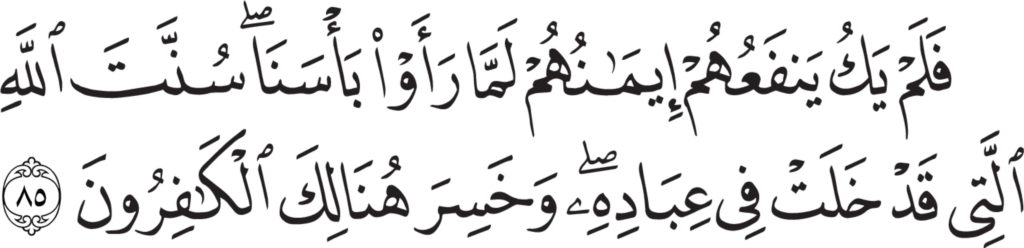 فَلَمْ يَكُ يَنفَعُهُمْ إِيمَـٰنُهُمْ لَمَّا رَأَوْا۟ بَأْسَنَا ۖ سُنَّتَ ٱللَّهِ
ٱلَّتِى قَدْ خَلَتْ فِى عِبَادِهِۦ ۖ وَخَسِرَ هُنَالِكَ ٱلْكَـٰفِرُونَ ٨٥